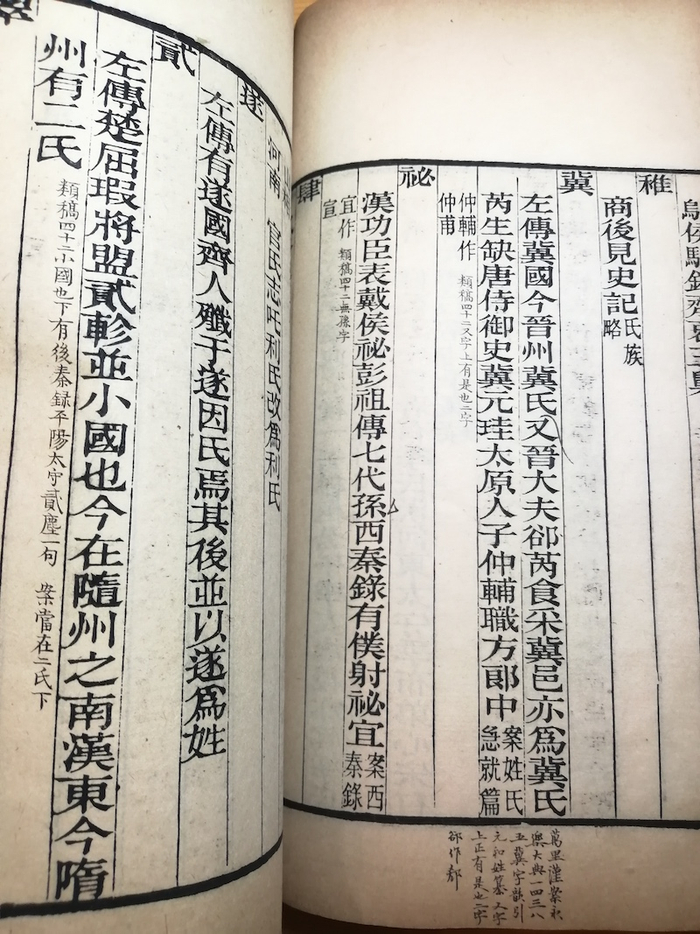 稚
商後見史記氏族
略
冀
左傳冀國今晉州冀氏又晉大夫郤芮食采冀邑亦爲冀氏
芮生缺唐侍御史冀元珪太原人子仲輔職方郎中案姓氏
急就篇
仲輔作
仲甫
類稿四十二又字上有是也二字
祕
漢功臣表戴侯祕彭祖傳七代孫西秦錄有僕射祕宜案西
秦錄
宜作
宣
類稿四十二無孫字
肆
萬里謹案永
樂大典一四三八
五冀字韻引
元和姓纂又字
上正有是也二字
郤作
河南 官氏志叱利氏改爲利氏
遂
左傳有遂國齊人殲于遂因氏焉其後並以遂爲姓
貳
左傳楚屈瑕將盟貳軫並小國也今在隨州之南漢東今隋
州有二氏
類稿四十二小國也下有後秦録平陽太守貳塵一句 案當在二氏下